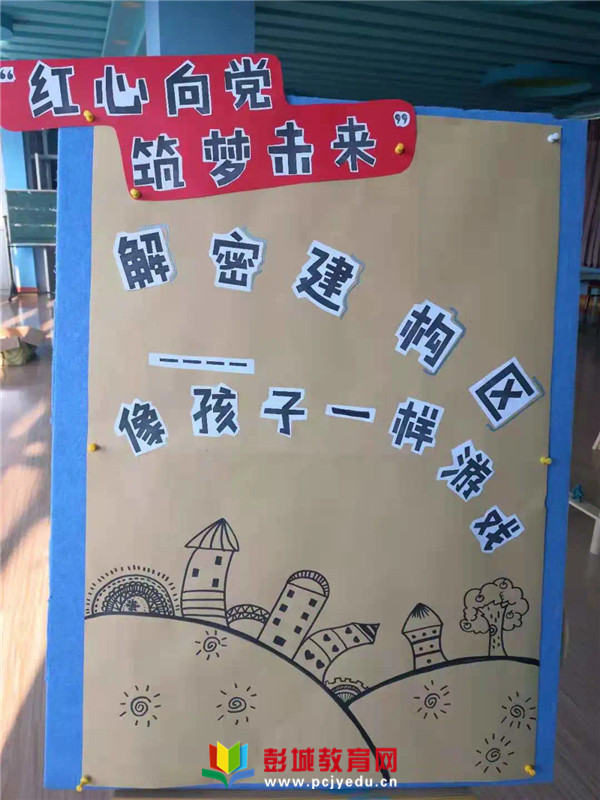 “红心向党
筑梦未来”
解密建构区
————
像孩子一样游戏
彭城教育网
www.pcjyedu.cn